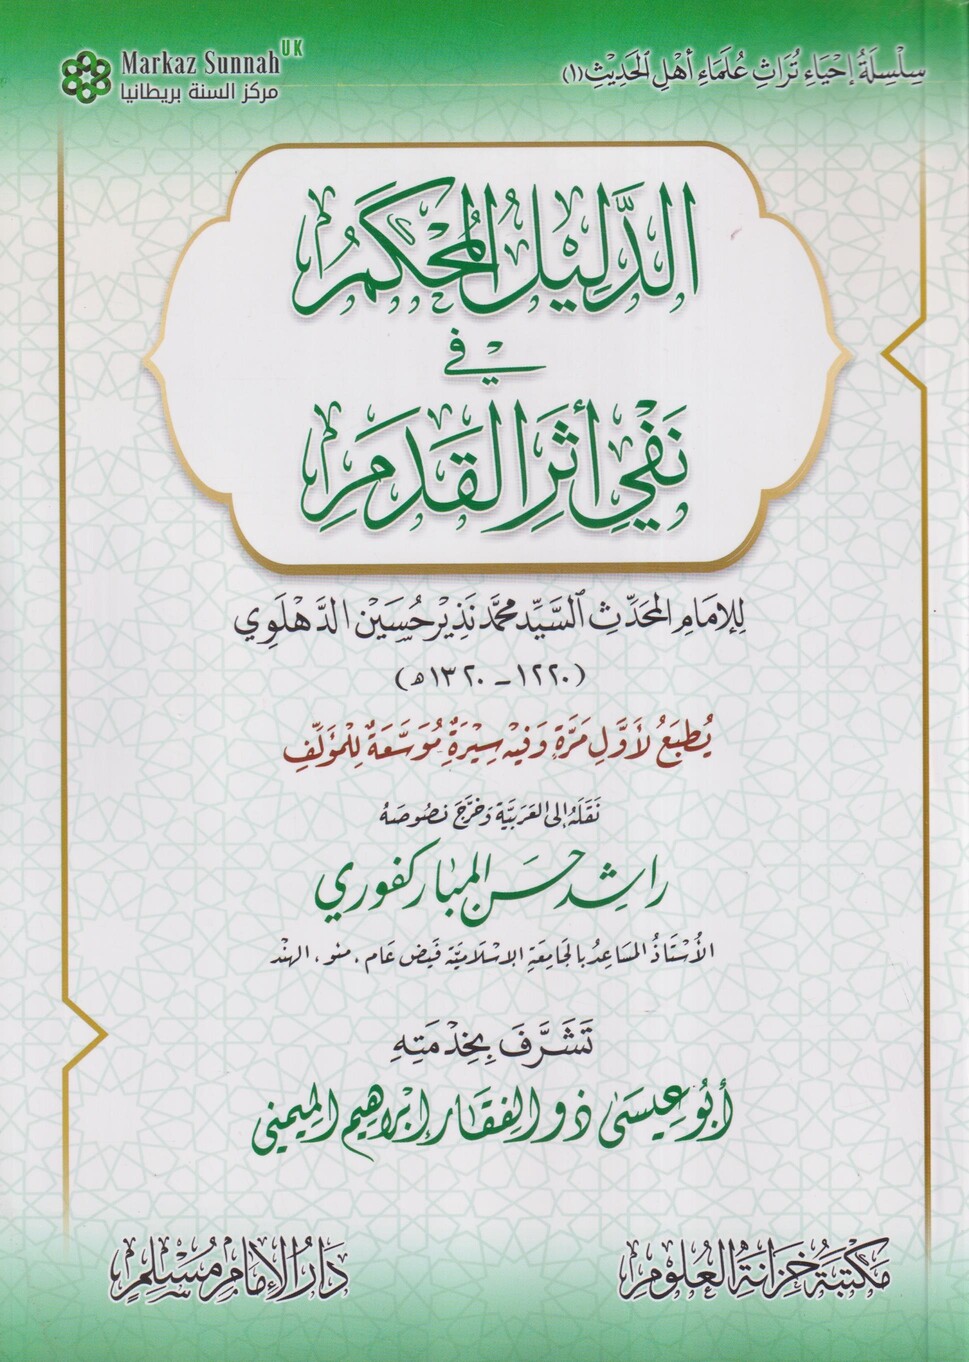 سِلْسِلَةُ إِحْيَاءِ تُرَاثِ عُلَمَاءِ أَهْلِ الحَدِيْثِ (١)
Markaz Sunnah UK
مركز السنة بريطانيا
الدَّلِيْلُ المُحْكَمُ
فِي
نَفْيِ أَثَرِ القَدَمِ
لِلإمَامِ المُحَدِّثِ السَّيِّد مُحَمَّد نَذِيْر حُسَيْن الدَّهْلَوِي
(١٢٢٠ - ١٣٢٠هـ)
يُطْبَعُ لأَوَّلِ مَرَّةٍ وَفِيْهِ سِيْرَةٌ مُوَسَّعَةٌ لِلْمُؤَلِّفِ
نَقَلَهُ إِلَى العَرَبِيَّةِ وَخَرَّجَ نُصُوصَهُ
رَاشِد حَسَن المُبَارَكْفُورِي
الأُسْتَاذُ المُسَاعِدُ بِالجَامِعَةِ الإِسْلَامِيَّة فَيْض عَام، مئو، الهِنْد
تَشَرَّفَ بِخِدْمَتِهِ
أَبُو عِيسَى ذو الفِقَار إبْرَاهِيم المِيمَنِي
مَكْتَبَةُ خِزَانَةِ العُلُومِ
دَارُ الإمَامِ مُسْلِمٍ